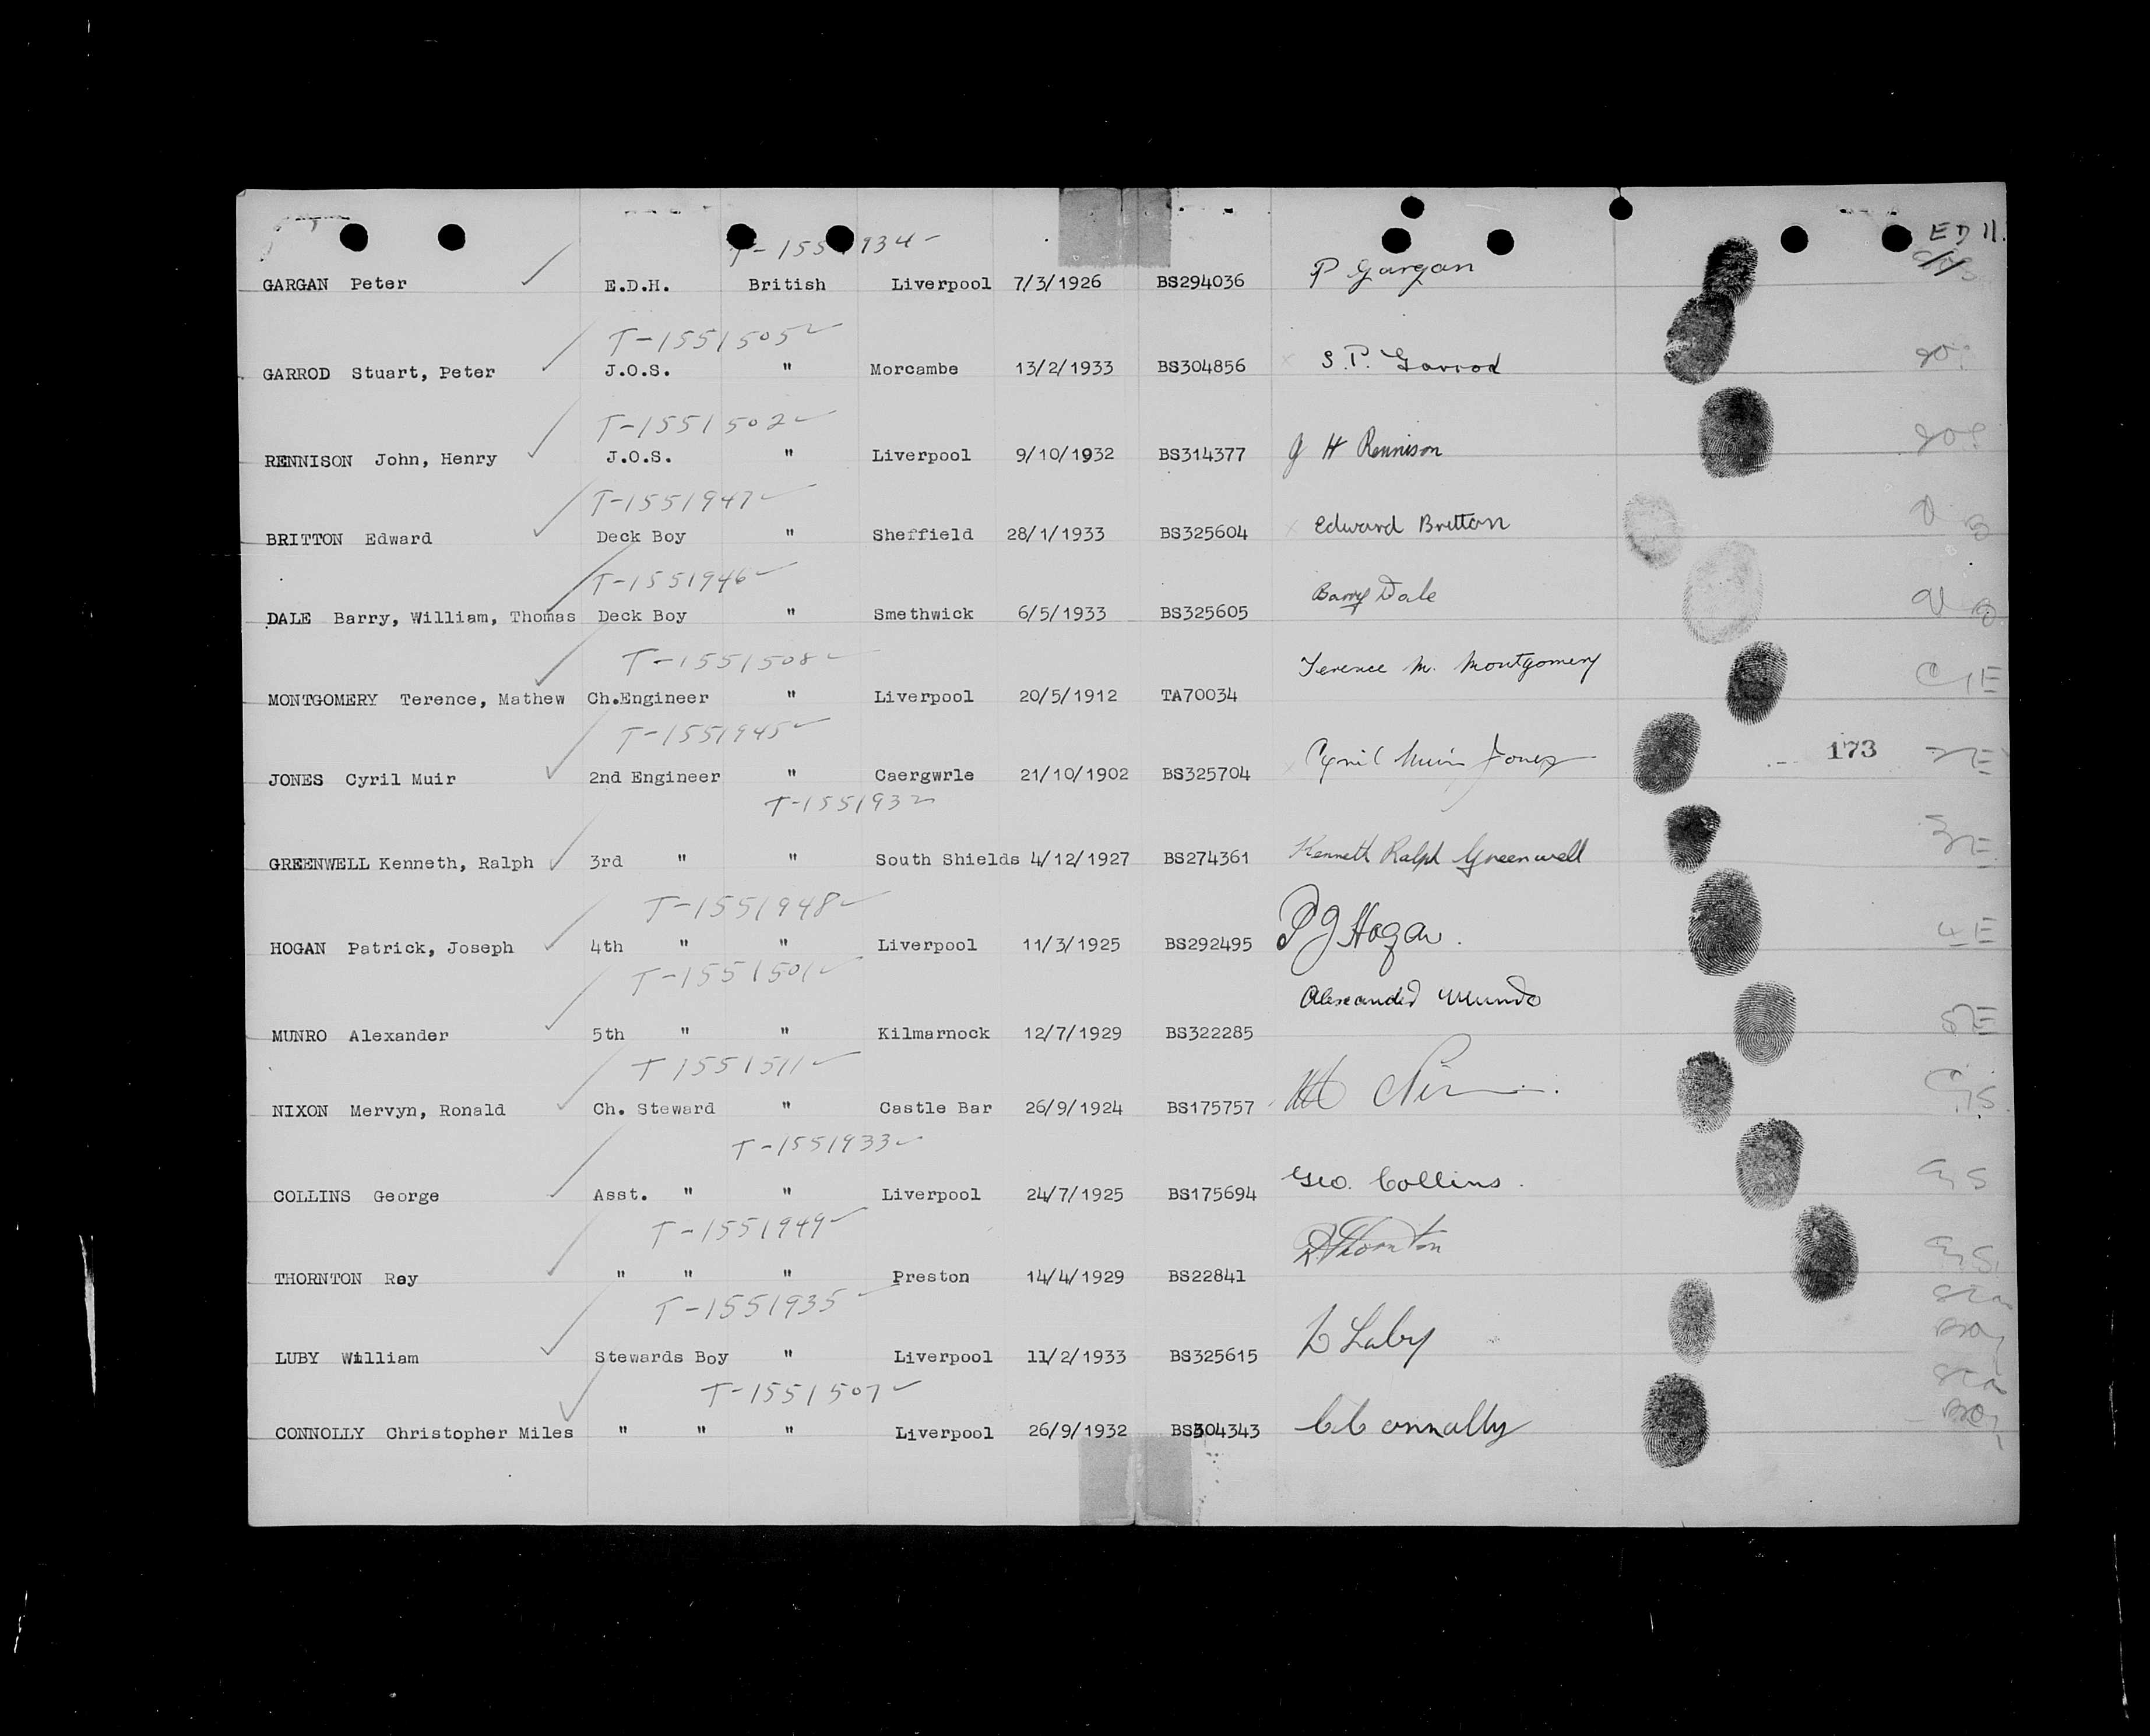 ED 11.
GARGAN Peter E.D.H. British Liverpool 7/3/1926 BS294036 P Gargan
T-1551505
GARROD Stuart, Peter J.O.S. " Morcambe 13/2/1933 BS304856 S.P. Garrod
T-1551502
RENNISON John, Henry J.O.S. " Liverpool 9/10/1932 BS314377 J H Rennison
T-1551947
BRITTON Edward Deck Boy " Sheffield 28/1/1933 BS325604 Edward Britton
T-1551946
DALE Barry, William, Thomas Deck Boy " Smethwick 6/5/1933 BS325605 Barry Dale
T-1551508
MONTGOMERY Terence, Mathew Ch.Engineer " Liverpool 20/5/1912 TA70034 Terence M. Montgomery C/E
T-1551945
JONES Cyril Muir 2nd Engineer " Caergwrle 21/10/1902 BS325704 Cyril Muir Jones 173 2/E
T-1551932
GREENWELL Kenneth, Ralph 3rd " " South Shields 4/12/1927 BS274361 Kenneth Ralph Greenwell 3/E
T-1551948
HOGAN Patrick, Joseph 4th " " Liverpool 11/3/1925 BS292495 P J Hogan. 4/E
T-1551501
MUNRO Alexander 5th " " Kilmarnock 12/7/1929 BS322285 Alexander Munro 5/E
T 1551511
NIXON Mervyn, Ronald Ch. Steward " Castle Bar 26/9/1924 BS175757 C/S.
T-1551933
COLLINS George Asst. " " Liverpool 24/7/1925 BS175694 Geo. Collins.
T-1551949
THORNTON Roy " " " Preston 14/4/1929 BS22841 R Thornton
T-1551935
LUBY William Stewards Boy " Liverpool 11/2/1933 BS325615 Luby
T-1551507
CONNOLLY Christopher Miles " " " Liverpool 26/9/1932 BS304343 C Connolly